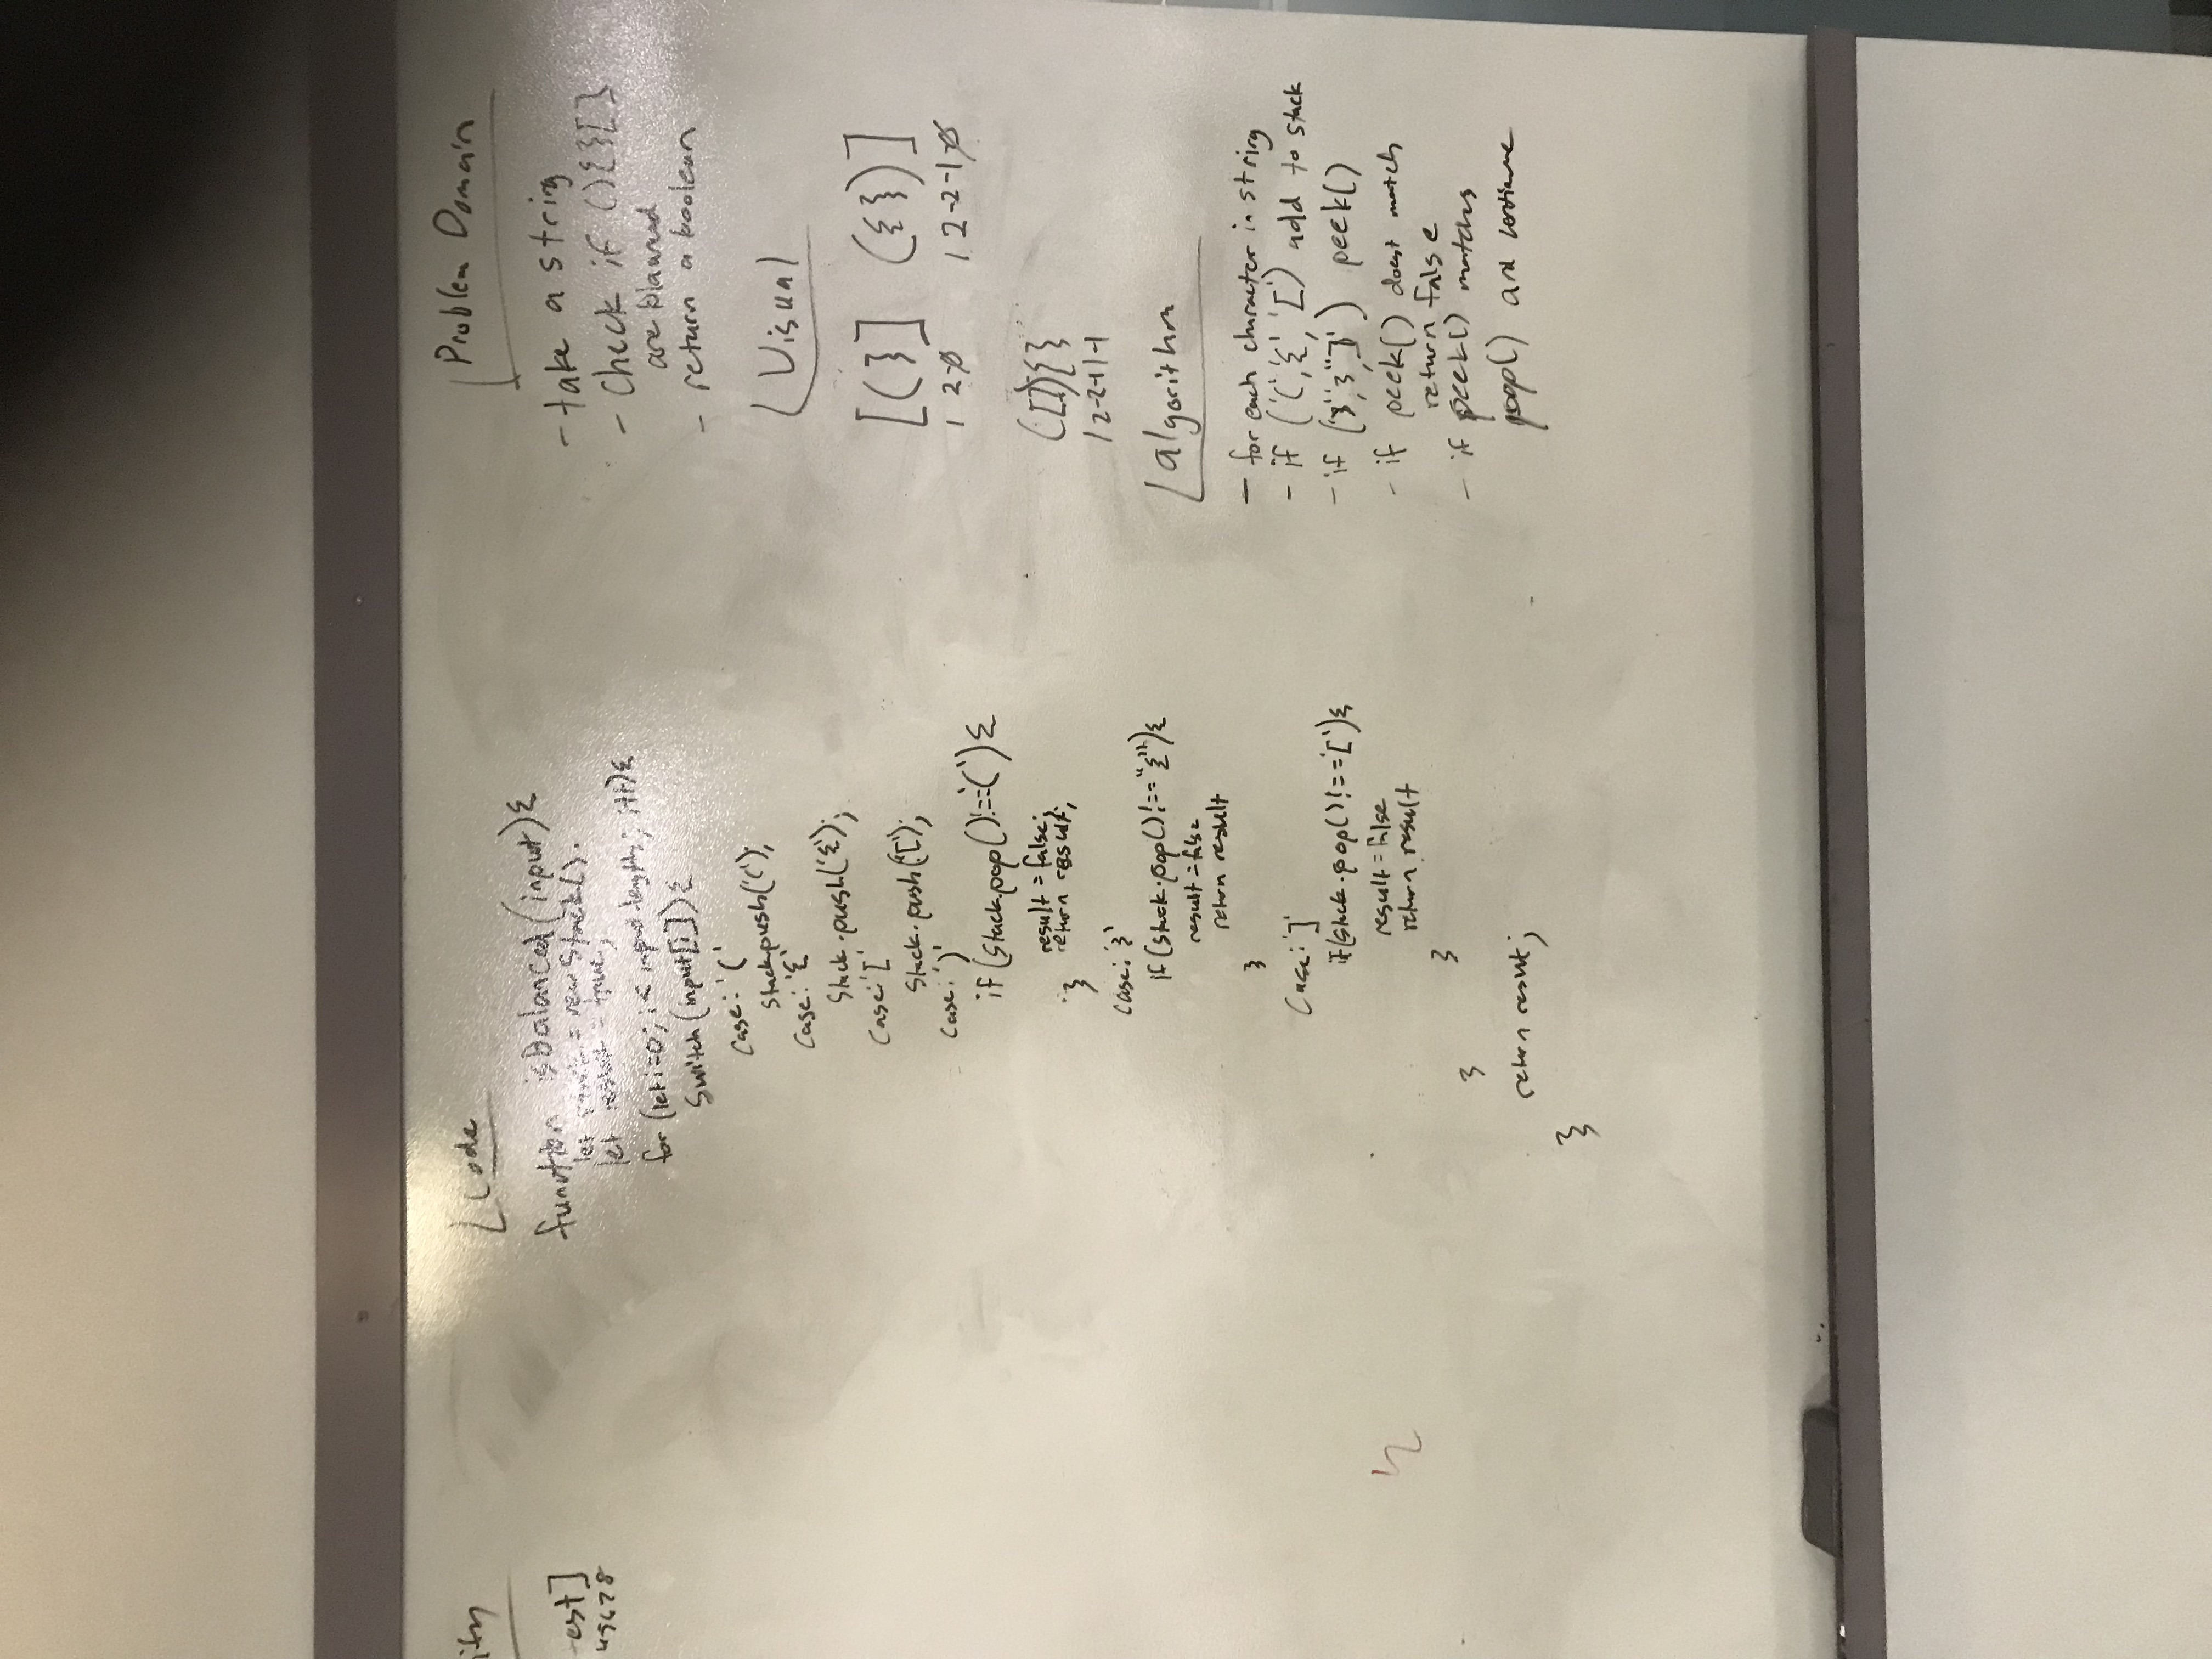 est]
45678
Code
function isBalanced(input){
let stack = new Stack().
let result = true;
for (let i=0; i< input.length; i++){
Switch (input[i]){
Case: '('
Stack.push('(');
Case: '{'
Stack.push('{');
Case: '['
Stack.push('[');
Case: ')'
if (Stack.pop() !== '('){
result = false;
return result;
}
Case: '}'
if (Stack.pop() !== "{"){
result = false
return result
}
Case: ']'
if (Stack.pop() !== '['){
result = false
return result
}
}
return result;
}
Problem Domain
- take a string
- Check if (){}[]
are
- return a boolean
Visual
[(}] ({})]
1 2-0 1 2-2-1-0
([]){}
1 2-2-1 1-1
algorithm
- for each character in string
- if ('(', '{', '[') add to stack
- if peek()
- if peek() doesnt match
return false
- if peek() matches
pop() and continue